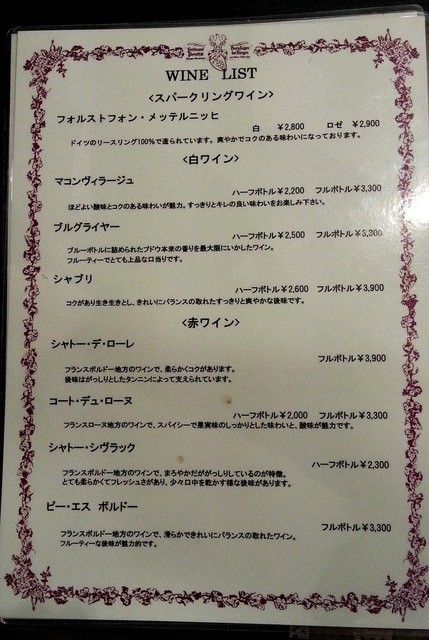 WINE LIST
<スパークリングワイン>
フォルストフォン・メッテルニッヒ
白 ￥2,800 ロゼ ￥2,900
ドイツのリースリング100%で造られています。爽やかでコクのある味わいになっております。
<白ワイン>
マコンヴィラージュ
ハーフボトル￥2,200 フルボトル￥3,300
ほどよい酸味とコクのある味わいが魅力。すっきりとキレの良い味わいをお楽しみ下さい。
ブルグライヤー
ハーフボトル￥2,500 フルボトル￥3,300
ブルーボトルに詰められたブドウ本来の香りを最大限にいかしたワイン。
フルーティーでとても上品な口当りです。
シャブリ
ハーフボトル￥2,600 フルボトル￥3,900
コクがあり生き生きとし、きれいにバランスの取れたすっきりと爽やかな後味です。
<赤ワイン>
シャトー・デ・ローレ
フルボトル￥3,900
フランスボルドー地方のワインで、柔らかくコクがあります。
後味はがっしりとしたタンニンによって支えられています。
コート・デュ・ローヌ
ハーフボトル￥2,000 フルボトル￥3,300
フランスローヌ地方のワインで、スパイシーで果実味のしっかりとした味わいと、酸味が魅力です。
シャトー・シヴラック
ハーフボトル￥2,300
フランスボルドー地方のワインで、まろやかだががっしりしているのが特徴。
とても柔らかくてフレッシュさがあり、少々口中を乾かす様な後味があります。
ピー・エス ボルドー
フルボトル￥3,300
フランスボルドー地方のワインで、滑らかできれいにバランスの取れたワイン。
フルーティーな後味が魅力的です。